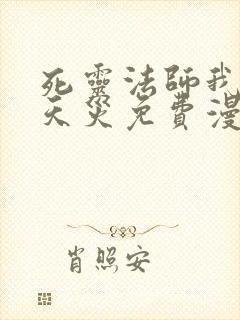 死靈法師我
天災免費漫
肖照安